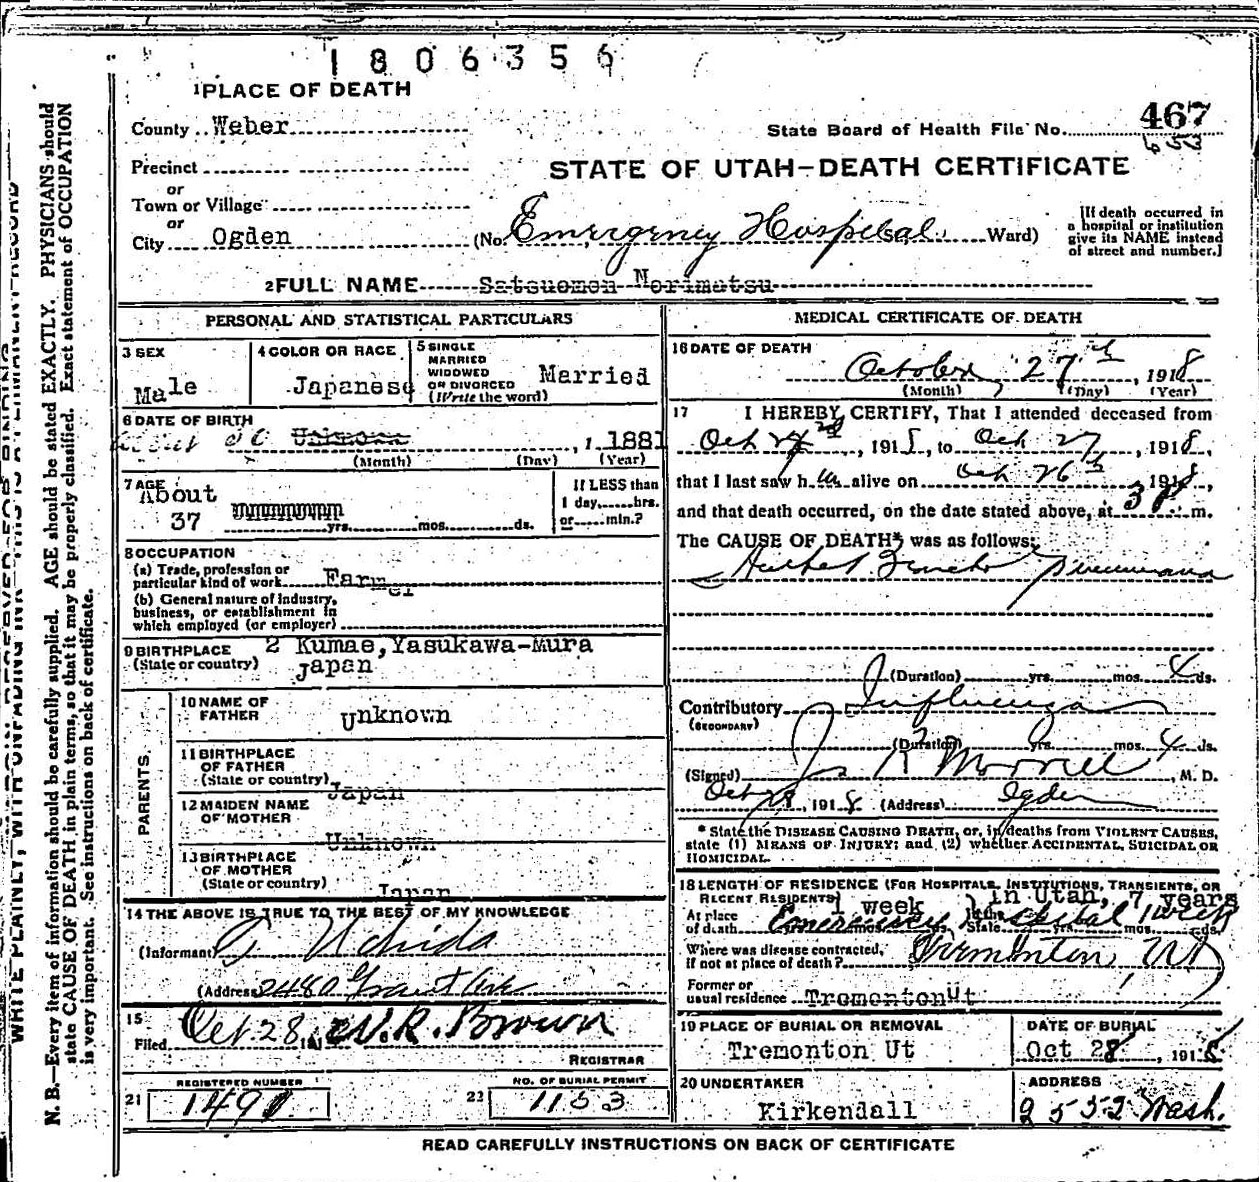 1806356
1 PLACE OF DEATH
County Weber
State Board of Health File No. 467
Precinct
STATE OF UTAH—DEATH CERTIFICATE
or
Town or Village
or
City Ogden
(No. Emergency Hospital Ward)
[If death occurred in
a hospital or institution
give its NAME instead
of street and number.]
2 FULL NAME Satsuomon Norimatsu
PERSONAL AND STATISTICAL PARTICULARS
3 SEX
Male
4 COLOR OR RACE
Japanese
5 SINGLE
MARRIED
WIDOWED
OR DIVORCED
(Write the word)
Married
6 DATE OF BIRTH
Unknown , 1881
(Month) (Day) (Year)
7 AGE
About
37 yrs. mos. ds.
If LESS than
1 day, hrs.
or min.?
8 OCCUPATION
(a) Trade, profession or
particular kind of work Farmer
(b) General nature of industry,
business, or establishment in
which employed (or employer)
9 BIRTHPLACE 2 Kumae, Yasukawa-Mura
(State or country) Japan
PARENTS.
10 NAME OF
FATHER Unknown
11 BIRTHPLACE
OF FATHER
(State or country) Japan
12 MAIDEN NAME
OF MOTHER
Unknown
13 BIRTHPLACE
OF MOTHER
(State or country) Japan
14 THE ABOVE IS TRUE TO THE BEST OF MY KNOWLEDGE
(Informant) Uchida
(Address) 2480 Grant Ave
15
Filed Oct. 28 191 W. R. Brown
REGISTRAR
21 REGISTERED NUMBER
1491
22 NO. OF BURIAL PERMIT
1153
MEDICAL CERTIFICATE OF DEATH
16 DATE OF DEATH
October 27th, 1918
(Month) (Day) (Year)
17 I HEREBY CERTIFY, That I attended deceased from
Oct 1918, to Oct 27, 1918,
that I last saw him alive on Oct 26th 1918,
and that death occurred, on the date stated above, at 3 m.
The CAUSE OF DEATH* was as follows:
Pneumonia
(Duration) yrs. mos. 4 ds.
Contributory Influenza
(SECONDARY)
(Duration) yrs. mos. 4 ds.
(Signed) Morrell, M. D.
Oct 1918 (Address) Ogden
* State the DISEASE CAUSING DEATH, or, in deaths from VIOLENT CAUSES,
state (1) MEANS OF INJURY; and (2) whether ACCIDENTAL, SUICIDAL OR
HOMICIDAL.
18 LENGTH OF RESIDENCE (FOR HOSPITALS, INSTITUTIONS, TRANSIENTS, OR
RECENT RESIDENTS) 1 week in Utah, 7 years
At place
of death Emergency Hospital 1 week
In the State yrs. mos. ds.
Where was disease contracted,
if not at place of death? Tremonton Ut
Former or
usual residence Tremonton Ut
19 PLACE OF BURIAL OR REMOVAL
Tremonton Ut
DATE OF BURIAL
Oct 28, 1918
20 UNDERTAKER
Kirkendall
ADDRESS
2552 Wash.
READ CAREFULLY INSTRUCTIONS ON BACK OF CERTIFICATE
N. B.—Every item of information should be carefully supplied. AGE should be stated EXACTLY. PHYSICIANS should
state CAUSE OF DEATH in plain terms, so that it may be properly classified. Exact statement of OCCUPATION
is very important. See instructions on back of certificate.